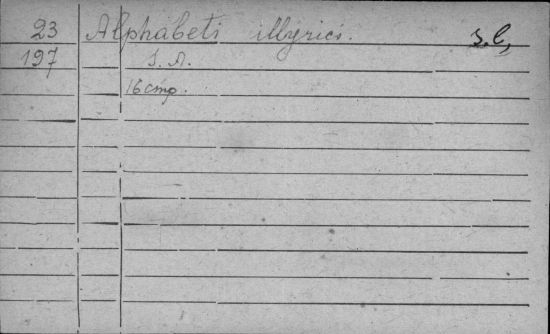 23 Alphabeti illyrici. S. l.,
197 S. A.
16 cmp.